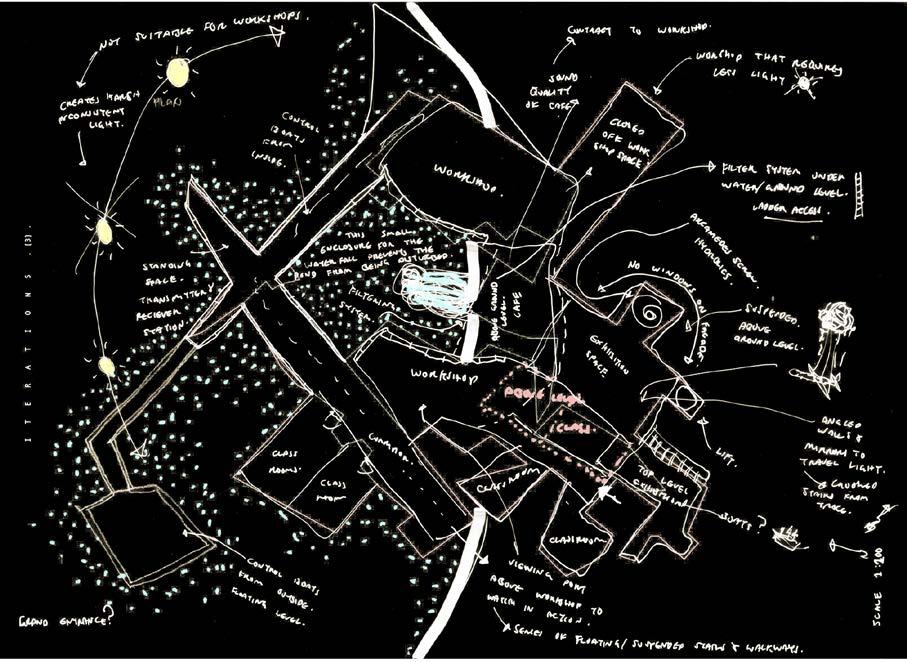 NOT SUITABLE FOR WORKSHOPS.
CREATES HARSH
INCONSISTENT
LIGHT.
CONTROL
BOATS
FROM
INSIDE.
CONTRAST TO WORKSHOP.
SOUND
QUALITY
OF CAFE
WORSHOP THAT REQUIRES
LESS LIGHT
CLOSED
OFF WORK
SHOP SPACE.
WORKSHOP
FILTER SYSTEM UNDER
WATER/GROUND LEVEL.
LADDER ACCESS.
THIS SMALL
ENCLOSURE FOR THE
WATER FALL PREVENTS THE
POND FROM BEING DISTURBED.
FILTERING
SYSTEM.
STANDING
SPACE.
STATION.
ABOVE GROUND
LEVEL
CAFE
NO WINDOWS ON
EXHIBITION
SPACE.
SUSPENDED.
ABOVE
GROUND LEVEL.
WORKSHOP
ABOVE LEVEL
CLASS
CLASS
ROOMS.
CLASS
ROOM
CLASSROOM
CLASSROOM
TOP LEVEL
LIFT.
ANGLED
WALLS &
MIRRORS TO
TRAVEL LIGHT.
STAIRS FROM
CONTROL BOATS
FROM OUTSIDE.
FLOATING LEVEL.
GRAND ENTRANCE?
VIEWING POINT
ABOVE WORKSHOP TO
WATCH IN ACTION.
SENSES OF FLOATING/SUSPENDED STAIRS & WALKWAYS.
ITERATIONS .(3).
SCALE 1:200